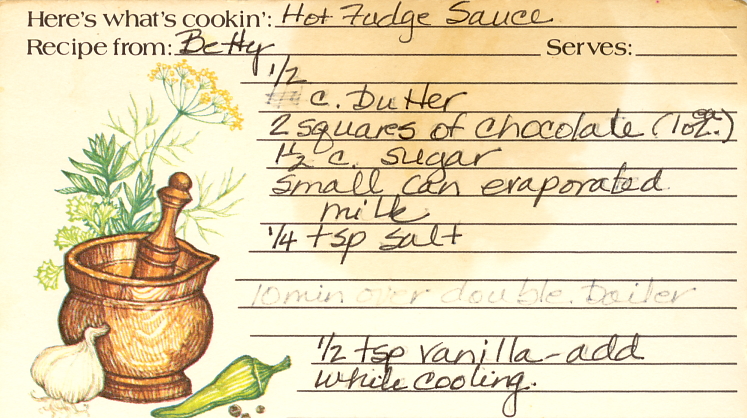 Here's what's cookin': Hot Fudge Sauce
Recipe from: Betty Serves:
1/2
c. Butter
2 squares of chocolate (1oz. ea.)
1 1/2 c. sugar
small can evaporated
milk
1/4 tsp salt
10 min over double boiler
1/2 tsp vanilla - add
while cooling.